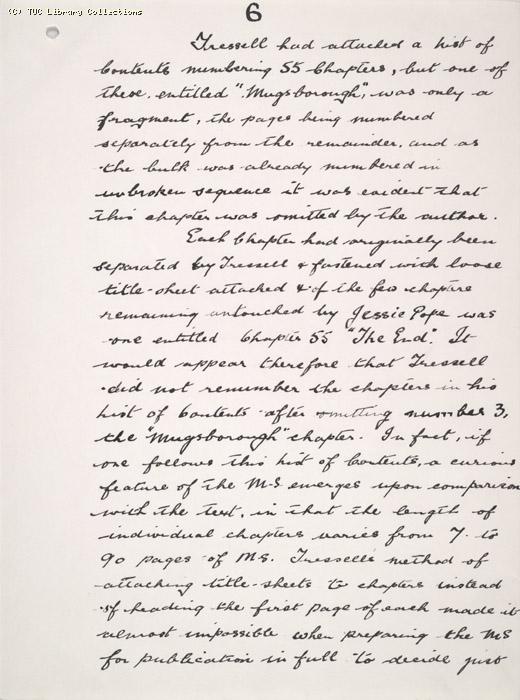 (C) TUC Library Collections
6
Tressell had attached a list of
Contents numbering 55 Chapters, but one of
these entitled "Mugsborough", was only a
fragment, the pages being numbered
separately from the remainder, and as
the bulk was already numbered in
unbroken sequence it was evident that
this chapter was omitted by the author.
Each Chapter had originally been
separated by Tressell & fastened with loose
title-sheet attached & of the few chapters
remaining untouched by Jessie Pope was
one entitled Chapter 55 "The End". It
would appear therefore that Tressell
did not renumber the chapters in his
list of Contents after omitting number 3,
the "Mugsborough" chapter. In fact, if
one follows this list of Contents, a curious
feature of the M-S emerges upon comparison
with the text, in that the length of
individual chapters varies from 7 to
90 pages of M.S. Tressell's method of
attaching title-sheets to chapters instead
of heading the first page of each made it
almost impossible when preparing the MS
for publication in full to decide just